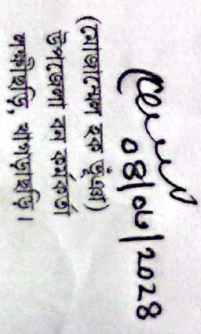 ০৪/০৬/২০২৪
(মোজাম্মেল হক ভূঁঞা)
উপজেলা বন কর্মকর্তা
লক্ষীছড়ি, খাগড়াছড়ি।